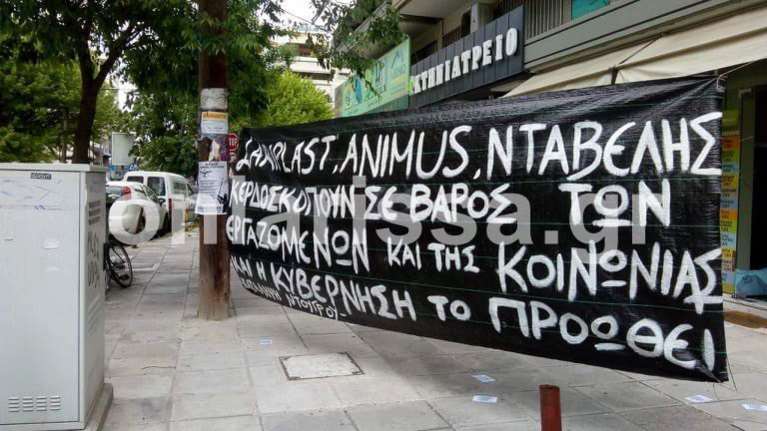 ΚΤΗΝΙΑΤΡΕΙΟ
ANIMUS, ΝΤΑΒΕΛΗΣ
ΚΕΡΔΟΣΚΟΠΟΥΝ ΣΕ ΒΑΡΟΣ ΤΩΝ
ΕΡΓΑΖΟΜΕΝΩΝ ΚΑΙ ΤΗΣ ΚΟΙΝΩΝΙΑΣ
ΚΑΙ Η ΚΥΒΕΡΝΗΣΗ ΤΟ ΠΡΟΩΘΕΙ
onlarissa.gr